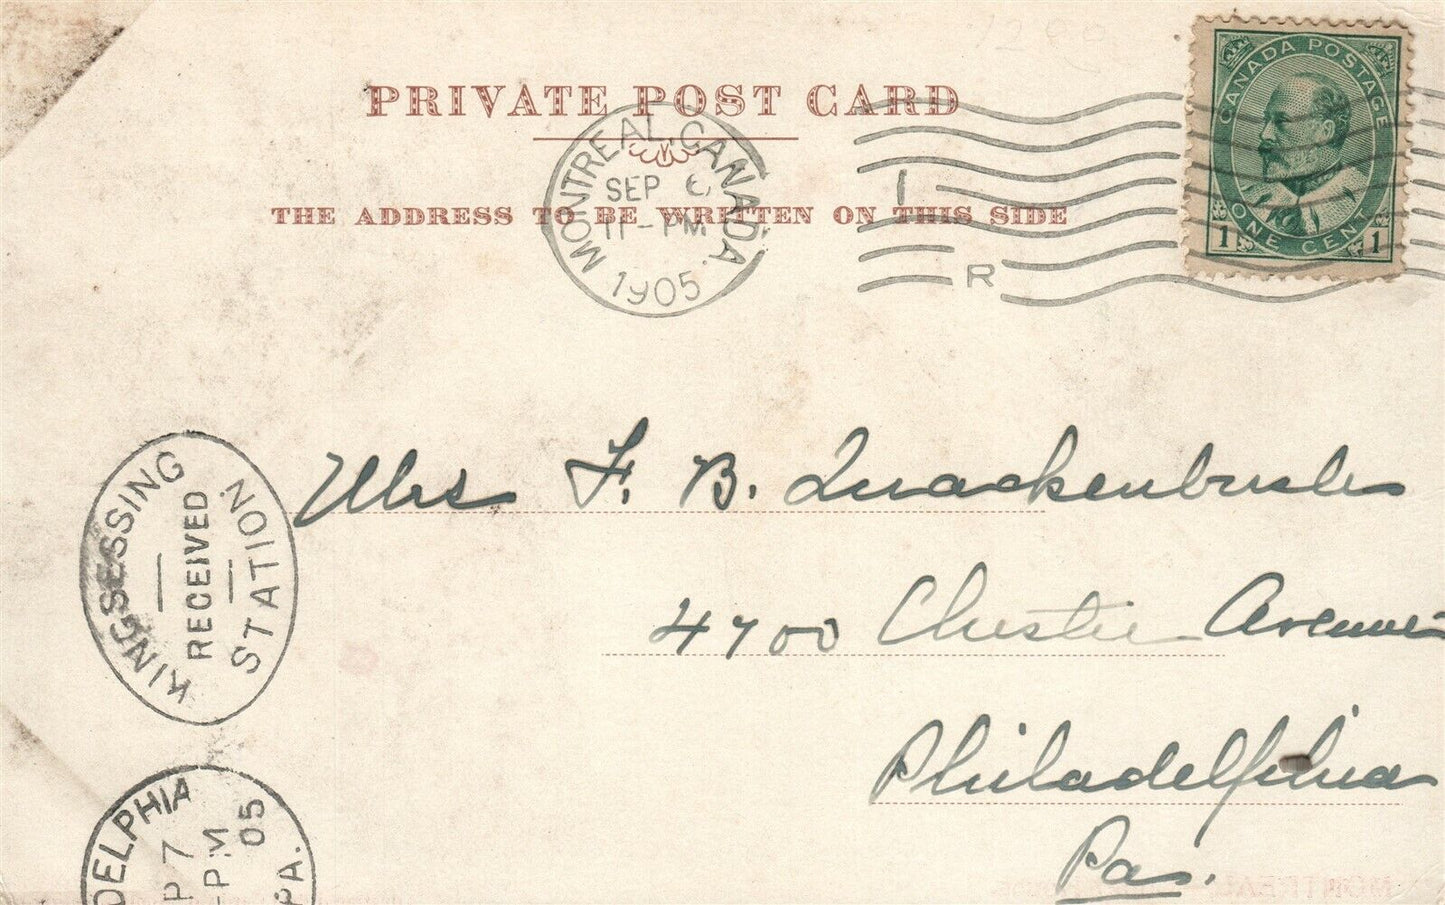 PRIVATE POST CARD
THE ADDRESS TO BE WRITTEN ON THIS SIDE
MONTREAL, CANADA.
SEP 6
11-PM
1905
I
R
CANADA POSTAGE
ONE CENT
1 1
Mrs F. B. Quackenbush
4700 Chester Avenue
Philadelphia
Pa.
KINGSESSING
RECEIVED
STATION
DELPHIA
PA.
P 7
-PM
05
MONTREAL